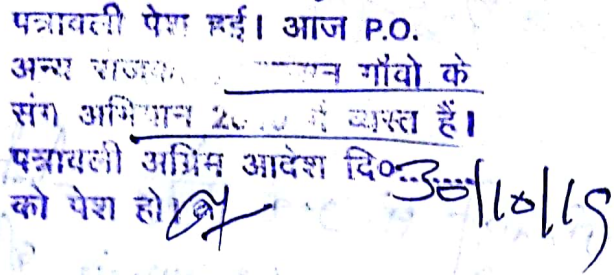 पत्रावली पेश हुई। आज P.O.
अन्य गाँवो के
संग अभियान में व्यस्त हैं।
पत्रावली अग्रिम आदेश दि०.....30/10/19
को पेश हो।